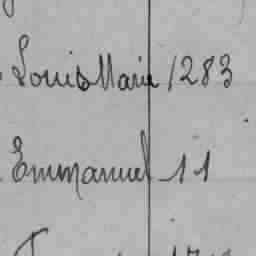 Louis Marie 1283
Emmanuel 11